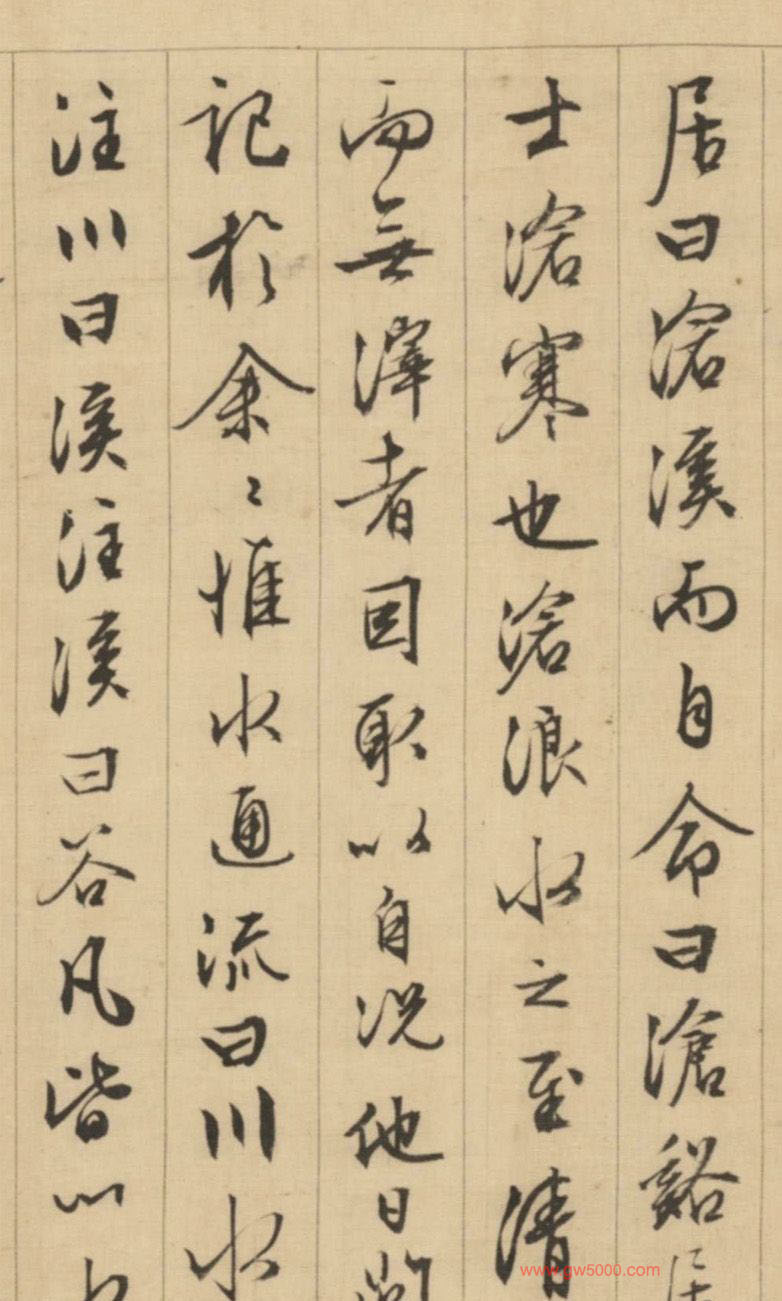 居曰滄溪而自命曰滄谿居
士滄寒也滄浪水之至清
而無滓者因取以自況他日
記於余〻惟水通流曰川水
注川曰溪注溪曰谷凡皆以
www.gw5000.com